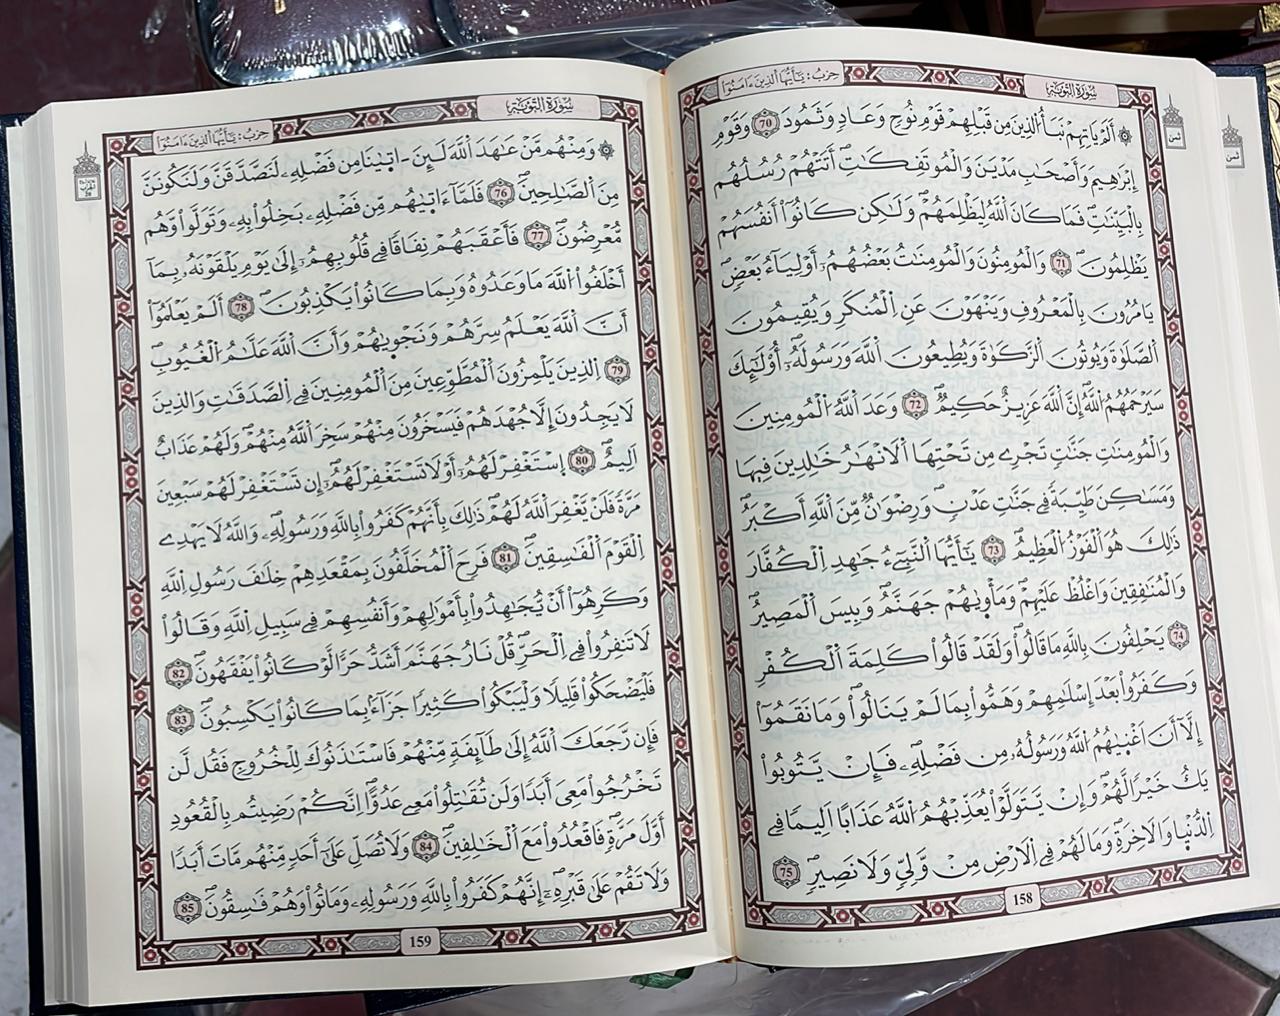 سُورَةُ التَّوْبَةِ
حِزْبُ: يَٰٓأَيُّهَا اَلذِينَ ءَامَنُواْ
ثمن
ثمن
۞ أَلَمْ يَاتِهِمْ نَبَأُ اُلذِينَ مِن قَبْلِهِمْ قَوْمِ نُوحٖ وَعَادٖ وَثَمُودَ 70 وَقَوْمِ
إِبْرَٰهِيمَ وَأَصْحَٰبِ مَدْيَنَ وَالْمُوتَفِكَٰتِۖ أَتَتْهُمْ رُسُلُهُم
بِالْبَيِّنَٰتِۖ فَمَا كَانَ اَللَّهُ لِيَظْلِمَهُمْۖ وَلَٰكِن كَانُوٓاْ أَنفُسَهُمْ
يَظْلِمُونَۖ 71 وَالْمُومِنُونَ وَالْمُومِنَٰتُ بَعْضُهُمُۥٓ أَوْلِيَآءُ بَعْضٖۖ
يَامُرُونَ بِالْمَعْرُوفِ وَيَنْهَوْنَ عَنِ اِلْمُنكَرِ وَيُقِيمُونَ
اَلصَّلَوٰةَ وَيُوتُونَ اَلزَّكَوٰةَ وَيُطِيعُونَ اَللَّهَ وَرَسُولَهُۥٓۖ أُوْلَٰٓئِكَ
سَيَرْحَمُهُمُ اُللَّهُۖ إِنَّ اَللَّهَ عَزِيزٌ حَكِيمٞۖ 72 وَعَدَ اَللَّهُ اُلْمُومِنِينَ
وَالْمُومِنَٰتِ جَنَّٰتٖ تَجْرِے مِن تَحْتِهَا اَلَانْهَٰرُ خَٰلِدِينَ فِيهَا
وَمَسَٰكِنَ طَيِّبَةٗ فِے جَنَّٰتِ عَدْنٖۖ وَرِضْوَٰنٞ مِّنَ اَللَّهِ أَكْبَرُۖ
ذَٰلِكَ هُوَ اَلْفَوْزُ اُلْعَظِيمُۖ 73 يَٰٓأَيُّهَا اَلنَّبِےٓءُ جَٰهِدِ اِلْكُفَّارَ
وَالْمُنَٰفِقِينَ وَاغْلُظْ عَلَيْهِمْۖ وَمَأْوٜيٰهُمْ جَهَنَّمُۖ وَبِيسَ اَلْمَصِيرُۖ
74 يَحْلِفُونَ بِاللَّهِ مَا قَالُواْۖ وَلَقَدْ قَالُواْ كَلِمَةَ اَلْكُفْرِ
وَكَفَرُواْ بَعْدَ إِسْلَٰمِهِمْ وَهَمُّواْ بِمَا لَمْ يَنَالُواْۖ وَمَا نَقَمُوٓاْ
إِلَّآ أَنَ اَغْنَيٰهُمُ اُللَّهُ وَرَسُولُهُۥ مِن فَضْلِهِۦۖ فَإِنْ يَّتُوبُواْ
يَكُ خَيْراٗ لَّهُمْۖ وَإِنْ يَّتَوَلَّوْاْ يُعَذِّبْهُمُ اُللَّهُ عَذَاباً اَلِيماٗ فِے
اِلدُّنْيٜا وَالَاخِرَةِۖ وَمَا لَهُمْ فِے اِلَارْضِ مِنْ وَّلِيّٖ وَلَا نَصِيرٖۖ 75
158
سُورَةُ التَّوْبَةِ
حِزْبُ: يَٰٓأَيُّهَا اَلذِينَ ءَامَنُواْ
۞ وَمِنْهُم مَّنْ عَٰهَدَ اَللَّهَ لَئِنَ اٰتٜيٰنَا مِن فَضْلِهِۦ لَنَصَّدَّقَنَّ وَلَنَكُونَنَّ
مِنَ اَلصَّٰلِحِينَۖ 76 فَلَمَّآ ءَاتٜيٰهُم مِّن فَضْلِهِۦ بَخِلُواْ بِهِۦ وَتَوَلَّواْ وَّهُم
مُّعْرِضُونَۖ 77 فَأَعْقَبَهُمْ نِفَاقاٗ فِے قُلُوبِهِمُۥٓ إِلَىٰ يَوْمِ يَلْقَوْنَهُۥ بِمَآ
أَخْلَفُواْ اُللَّهَ مَا وَعَدُوهُ وَبِمَا كَانُواْ يَكْذِبُونَۖ 78 أَلَمْ يَعْلَمُوٓاْ
أَنَّ اَللَّهَ يَعْلَمُ سِرَّهُمْ وَنَجْوٜيٰهُمْ وَأَنَّ اَللَّهَ عَلَّٰمُ اُلْغُيُوبِۖ
79 اِلذِينَ يَلْمِزُونَ اَلْمُطَّوِّعِينَ مِنَ اَلْمُومِنِينَ فِے اِلصَّدَقَٰتِ وَالذِينَ
لَا يَجِدُونَ إِلَّا جُهْدَهُمْ فَيَسْخَرُونَ مِنْهُمْ سَخِرَ اَللَّهُ مِنْهُمْۖ وَلَهُمْ عَذَابٌ
اَلِيمٌۖ 80 اِسْتَغْفِرْ لَهُمُۥٓ أَوْ لَا تَسْتَغْفِرْ لَهُمُۥٓۖ إِن تَسْتَغْفِرْ لَهُمْ سَبْعِينَ
مَرَّةٗ فَلَنْ يَّغْفِرَ اَللَّهُ لَهُمْۖ ذَٰلِكَ بِأَنَّهُمْ كَفَرُواْ بِاللَّهِ وَرَسُولِهِۦۖ وَاللَّهُ لَا يَهْدِے
اِلْقَوْمَ اَلْفَٰسِقِينَۖ 81 فَرِحَ اَلْمُخَلَّفُونَ بِمَقْعَدِهِمْ خِلَٰفَ رَسُولِ اِللَّهِ
وَكَرِهُوٓاْ أَنْ يُّجَٰهِدُواْ بِأَمْوَٰلِهِمْ وَأَنفُسِهِمْ فِے سَبِيلِ اِللَّهِ وَقَالُواْ
لَا تَنفِرُواْ فِے اِلْحَرِّۖ قُلْ نَارُ جَهَنَّمَ أَشَدُّ حَرّاٗ لَّوْ كَانُواْ يَفْقَهُونَۖ 82
فَلْيَضْحَكُواْ قَلِيلاٗ وَلْيَبْكُواْ كَثِيراٗ جَزَآءَۢ بِمَا كَانُواْ يَكْسِبُونَۖ 83
فَإِن رَّجَعَكَ اَللَّهُ إِلَىٰ طَآئِفَةٖ مِّنْهُمْ فَاسْتَٰذَنُوكَ لِلْخُرُوجِ فَقُل لَّن
تَخْرُجُواْ مَعِے أَبَداٗ وَلَن تُقَٰتِلُواْ مَعِے عَدُوّاًۖ اِنَّكُمْ رَضِيتُم بِالْقُعُودِ
أَوَّلَ مَرَّةٖۖ فَاقْعُدُواْ مَعَ اَلْخَٰلِفِينَۖ 84 وَلَا تُصَلِّ عَلَىٰٓ أَحَدٖ مِّنْهُم مَّاتَ أَبَداٗ
وَلَا تَقُمْ عَلَىٰ قَبْرِهِۦٓۖ إِنَّهُمْ كَفَرُواْ بِاللَّهِ وَرَسُولِهِۦ وَمَاتُواْ وَهُمْ فَٰسِقُونَۖ 85
159